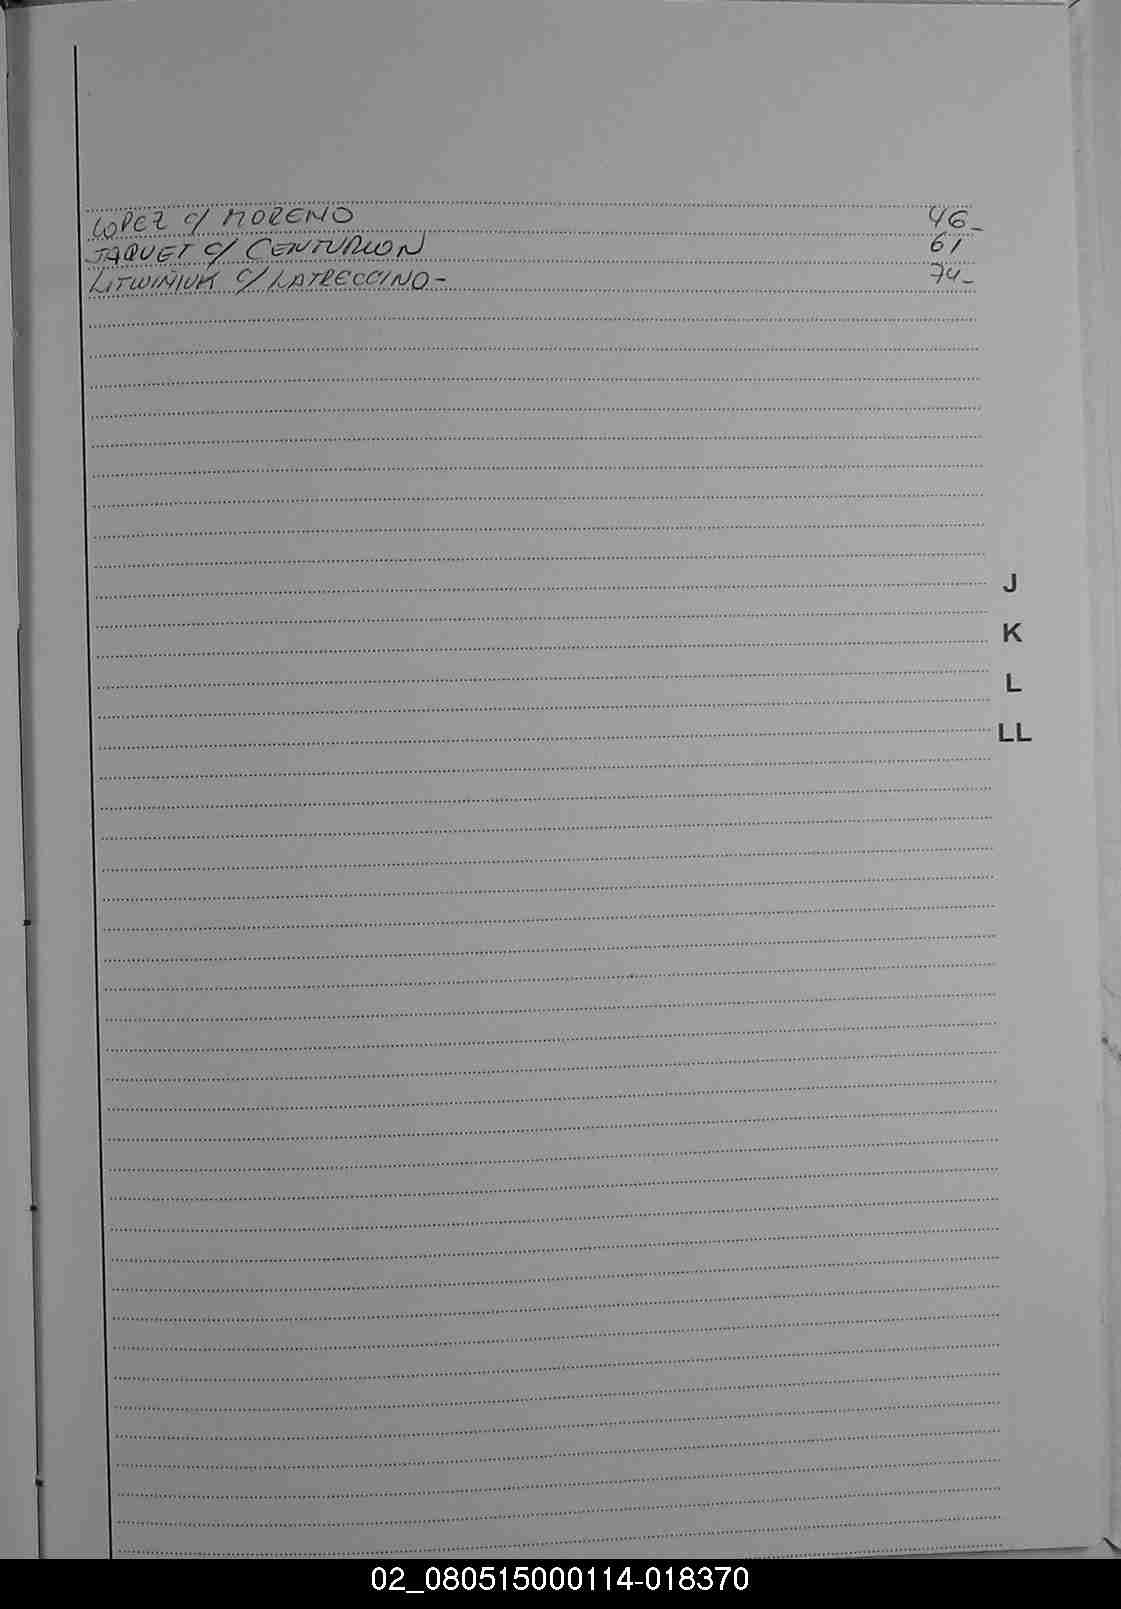 LOPEZ c/ MORENO 46_
JAQUET c/ CENTURION 61
LITWIÑIUK c/ LATRECCINO- 74_
J
K
L
LL
02_080515000114-018370